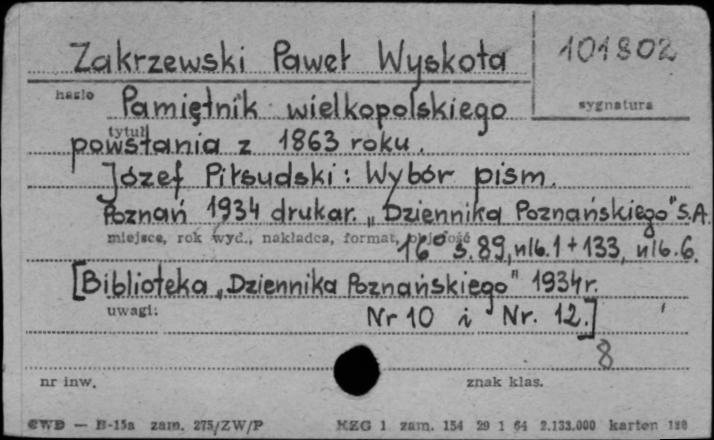 Zakrzewski Paweł Wyskota
101802
hasło
sygnatura
Pamiętnik wielkopolskiego
tytuł
powstania z 1863 roku.
Józef Piłsudski: Wybór pism.
Poznań 1934 drukar. „Dziennika Poznańskiego" S.A.
miejsce, rok wyd., nakładca, format, objętość
16° s. 89, nlb. 1 + 133, nlb. 6.
[Biblioteka „Dziennika Poznańskiego" 1934 r.
uwagi:
Nr 10 i Nr. 12.]
8
nr inw.
znak klas.
CWD — B-15a zam. 275/ZW/P KZG 1 zam. 154 29 1 64 2.133.000 karton